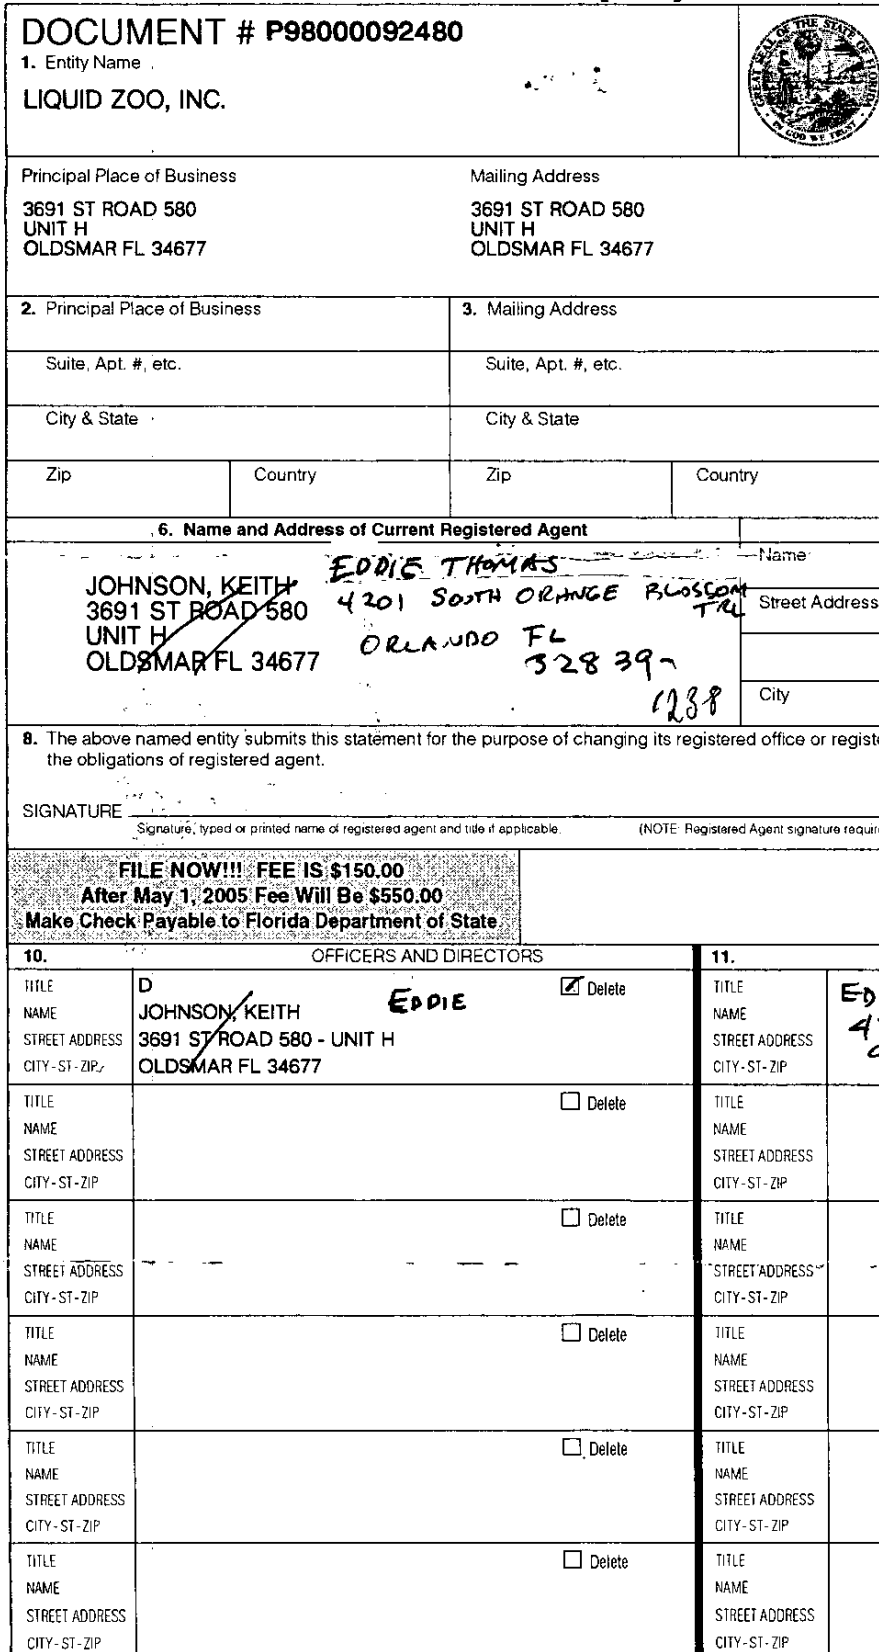 DOCUMENT # P98000092480
1. Entity Name
LIQUID ZOO, INC.
GREAT SEAL OF THE STATE OF FLORIDA
IN GOD WE TRUST
Principal Place of Business
3691 ST ROAD 580
UNIT H
OLDSMAR FL 34677
Mailing Address
3691 ST ROAD 580
UNIT H
OLDSMAR FL 34677
2. Principal Place of Business
3. Mailing Address
Suite, Apt. #, etc.
Suite, Apt. #, etc.
City & State
City & State
Zip
Country
Zip
Country
6. Name and Address of Current Registered Agent
JOHNSON, KEITH
3691 ST ROAD 580
UNIT H
OLDSMAR FL 34677
EDDIE THOMAS
4201 SOUTH ORANGE BLOSSOM
TRL
ORLANDO FL
32839-
1238
Name
Street Address
City
8. The above named entity submits this statement for the purpose of changing its registered office or registe
the obligations of registered agent.
SIGNATURE
Signature, typed or printed name of registered agent and title if applicable.
(NOTE: Registered Agent signature requir
FILE NOW!!! FEE IS $150.00
After May 1, 2005 Fee Will Be $550.00
Make Check Payable to Florida Department of State
10. OFFICERS AND DIRECTORS
11.
TITLE D Delete
NAME JOHNSON, KEITH EDDIE
STREET ADDRESS 3691 ST ROAD 580 - UNIT H
CITY-ST-ZIP OLDSMAR FL 34677
TITLE ED
NAME 4
STREET ADDRESS
CITY-ST-ZIP
TITLE Delete
NAME
STREET ADDRESS
CITY-ST-ZIP
TITLE
NAME
STREET ADDRESS
CITY-ST-ZIP
TITLE Delete
NAME
STREET ADDRESS
CITY-ST-ZIP
TITLE
NAME
STREET ADDRESS
CITY-ST-ZIP
TITLE Delete
NAME
STREET ADDRESS
CITY-ST-ZIP
TITLE
NAME
STREET ADDRESS
CITY-ST-ZIP
TITLE Delete
NAME
STREET ADDRESS
CITY-ST-ZIP
TITLE
NAME
STREET ADDRESS
CITY-ST-ZIP
TITLE Delete
NAME
STREET ADDRESS
CITY-ST-ZIP
TITLE
NAME
STREET ADDRESS
CITY-ST-ZIP